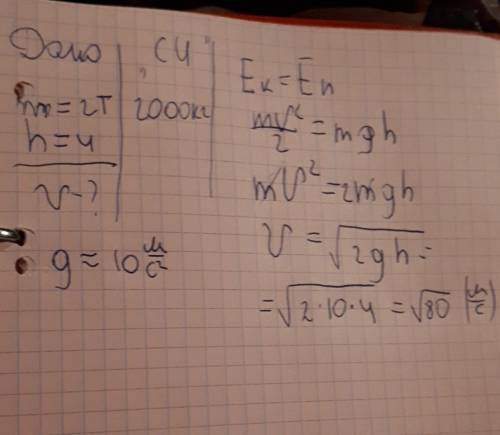 Дано СИ
m=2т 2000кг
h=4
v-?
g≈10 м/с²
Eк=Eп
mv²/2=mgh
mv²=2mgh
v=√2gh=
=√2·10·4=√80 (м/с)